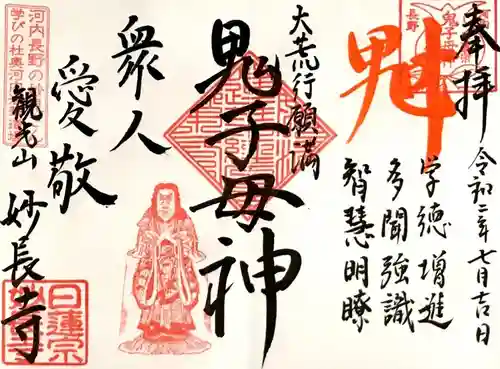 奉拝
令和二年七月吉日
魁
学徳増進
多聞強識
智慧明瞭
大荒行願満
鬼子母神
衆人
愛敬
観光山
妙長寺
河内長野の
学びの杜奥河内
長野
鬼子母神
日蓮宗
妙長寺